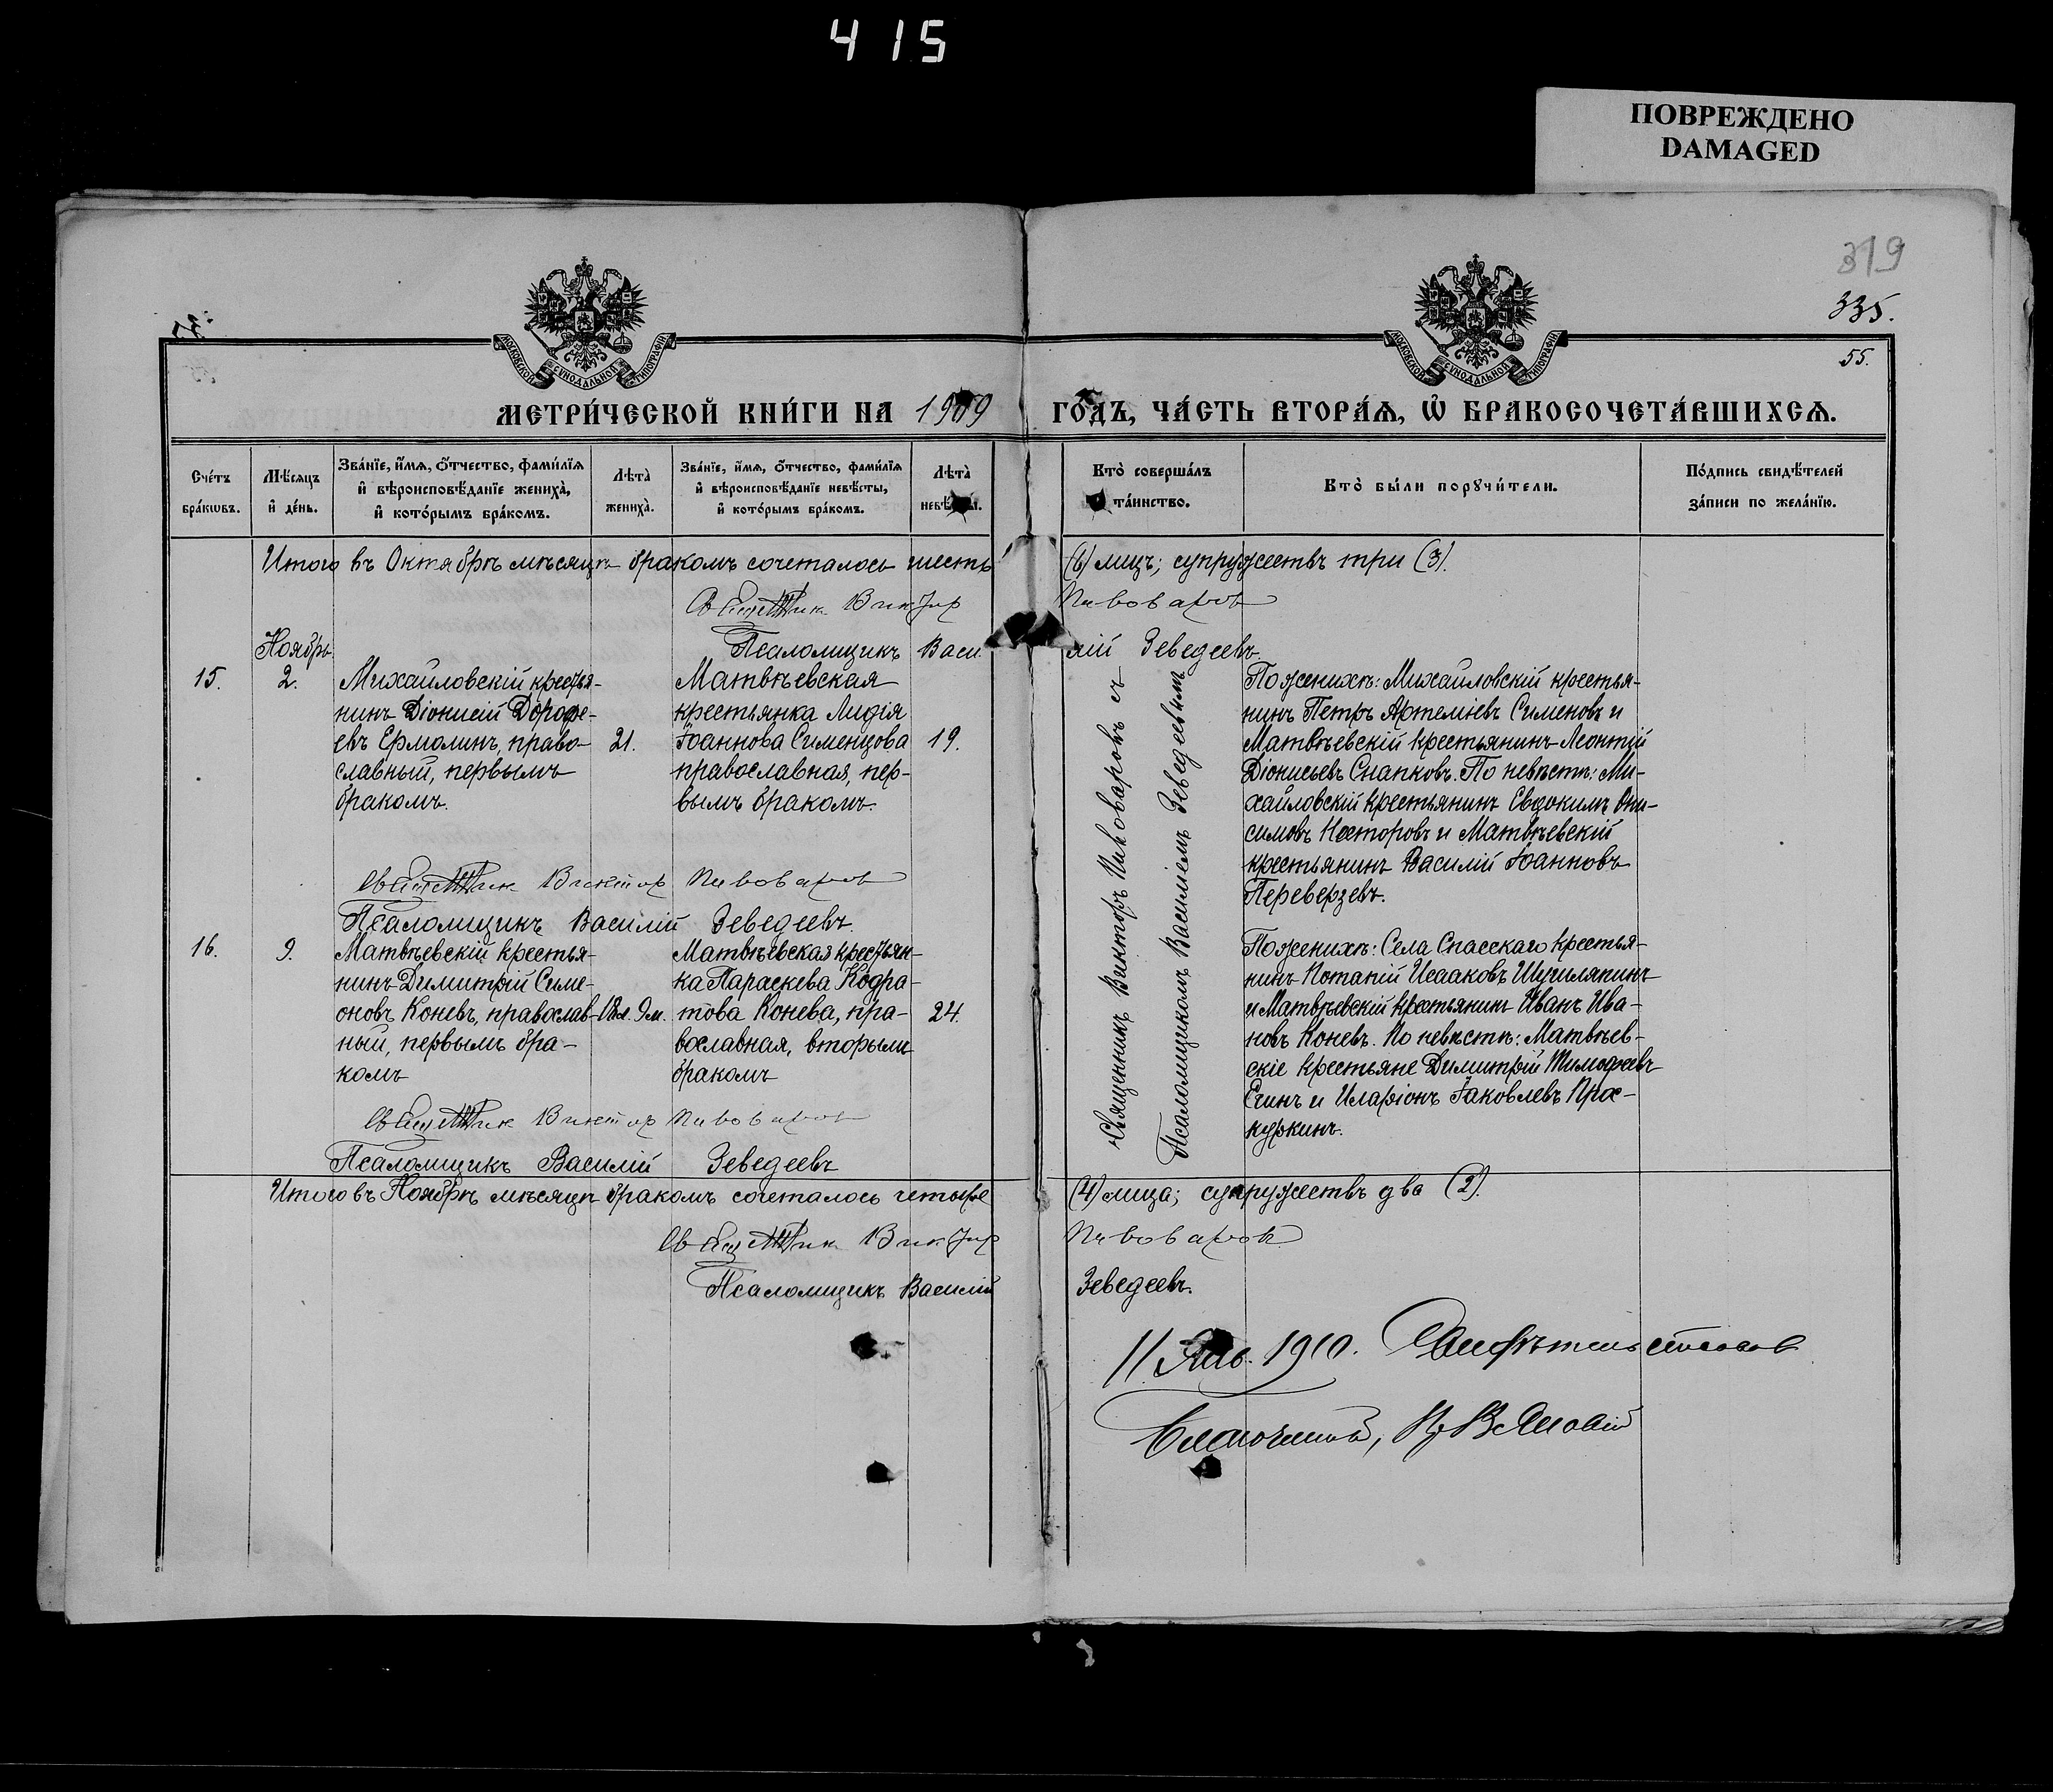 415
ПОВРЕЖДЕНО
DAMAGED
319
335.
55.
МОСКОВСКОЙ СѴНОДАЛЬНОЙ ТИПОГРАФІИ
МОСКОВСКОЙ СѴНОДАЛЬНОЙ ТИПОГРАФІИ
МЕТРИ́ЧЕСКОЙ КНИ́ГИ НА 1909 ГО́ДЪ, ЧА́СТЬ ВТОРА́Ѧ, Ѽ БРАКОСОЧЕТА́ВШИХСѦ.
Сче́тъ бра́кѡвъ.
Мѣ́сяцъ и҆ де́нь.
Зва́нїе, и҆́мѧ, ѻ҆́тчество, фами́лїѧ
и҆ вѣроисповѣ́данїе жениха̀,
и҆ кото́рымъ бра́комъ.
Лѣта̀
жениха̀.
Зва́нїе, и҆́мѧ, ѻ҆́тчество, фами́лїѧ
и҆ вѣроисповѣ́данїе невѣ́сты,
и҆ кото́рымъ бра́комъ.
Лѣта̀
невѣ́сты.
Кто̀ соверша́лъ
та́инство.
Кто̀ бы́ли порꙋчи́тели.
По́дпись свидѣ́телей
за́писи по жела́нїю.
Итого въ Октябрѣ мѣсяцѣ бракомъ сочеталось шесть (6) лицъ; супружествъ три (3).
Священник Виктор Пивоваров
Псаломщикъ Василій Зеведеевъ
Ноябрь
15.
2.
Михайловскій крестья-
нинъ Діонисій Дорофе-
евъ Ермолинъ, право-
славный, первымъ
бракомъ.
21.
Матвѣевская
крестьянка Лидія
Іоаннова Сименцова
православная, пер-
вымъ бракомъ.
19.
Священникъ Викторъ Пивоваровъ съ
Псаломщикомъ Василіемъ Зеведеевымъ
По женихѣ: Михайловскій крестья-
нинъ Петръ Артеміевъ Сименовъ и
Матвѣевскій крестьянинъ Леонтій
Діонисьевъ Снапковъ. По невѣстѣ: Ми-
хайловскій крестьянинъ Евдокимъ Они-
симовъ Несторовъ и Матвѣевскій
крестьянинъ Василій Іоанновъ
Переверзевъ.
Священник Виктор Пивоваров
Псаломщикъ Василій Зеведеевъ.
16.
9.
Матвѣевскій крестья-
нинъ Димитрій Симе-
оновъ Коневъ, православ-
ный, первымъ бра-
комъ
18л. 9м.
Матвѣевская крестьян-
ка Параскева Кодра-
това Конева, пра-
вославная, вторымъ
бракомъ
24.
По женихѣ: Села Спасскаго крестья-
нинъ Потапій Исааковъ Шушляпинъ
и Матвѣевскій крестьянинъ Иванъ Ива-
новъ Коневъ. По невѣстѣ: Матвѣев-
скіе крестьяне Димитрій Тимофеевъ
Егинъ и Иларіонъ Іаковлевъ Прос-
куркинъ.
Священник Виктор Пивоваров
Псаломщикъ Василій Зеведеевъ
Итого въ Ноябрѣ мѣсяцѣ бракомъ сочеталось четыре (4) лица; супружествъ два (2).
Священник Виктор Пивоваров
Псаломщикъ Василій Зеведеевъ.
11 Янв. 1910. Свидѣтельствовал
Благочинный,